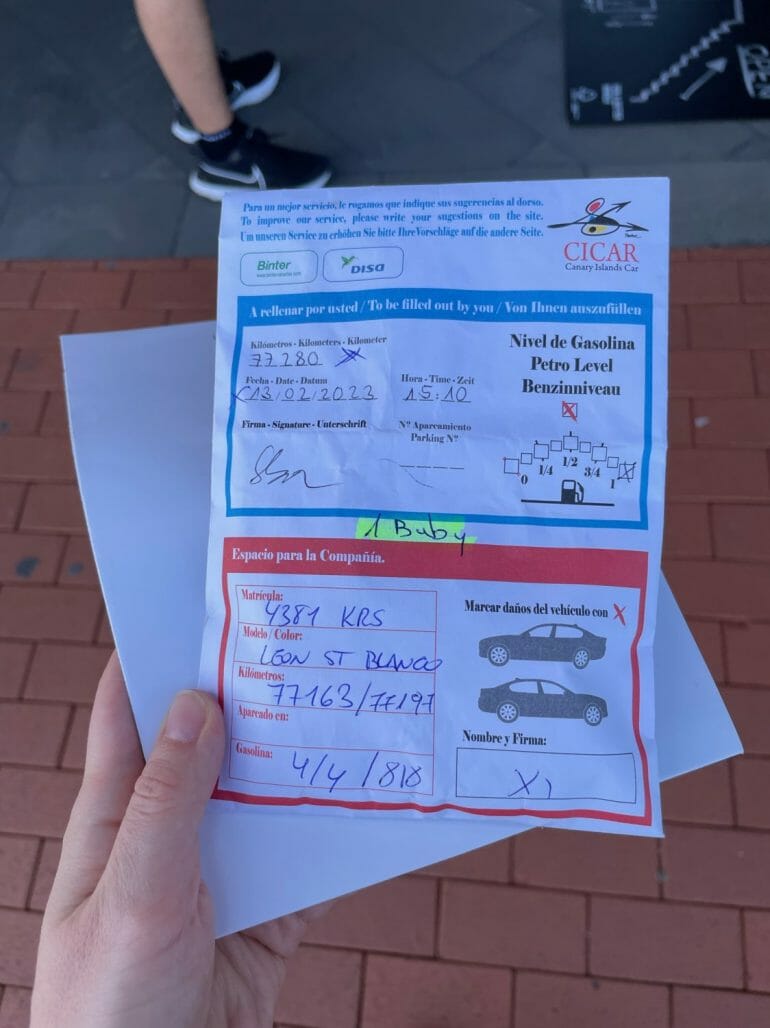 Para un mejor servicio, le rogamos que indique sus sugerencias al dorso.
To improve our service, please write your sugestions on the site.
Um unseren Service zu erhöhen Sie bitte Ihre Vorschläge auf die andere Seite.
Binter
DISA
CICAR
Canary Islands Car
A rellenar por usted / To be filled out by you / Von Ihnen auszufüllen
Kilómetros - Kilometers - Kilometer
77280
Fecha - Date - Datum
13/02/2023
Hora - Time - Zeit
15:10
Firma - Signature - Unterschrift
Nº Aparcamiento
Parking Nº
Nivel de Gasolina
Petro Level
Benzinniveau
0 1/4 1/2 3/4 1
1 Baby
Espacio para la Compañía.
Matrícula:
4381 KRS
Modelo / Color:
LEON ST BLANCO
Kilómetros:
77163/77197
Aparcado en:
Gasolina:
4/4 / 818
Marcar daños del vehículo con X
Nombre y Firma:
OPEN